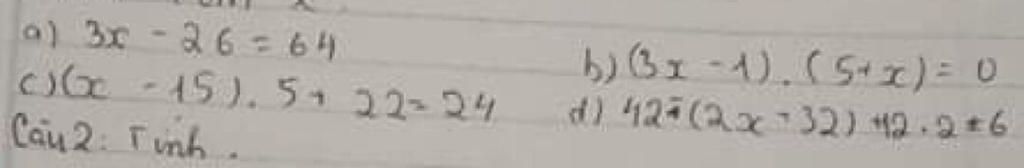 a) 3x - 26 = 64
b) (3x - 1) . (5+x) = 0
c) (x - 15) . 5 + 22 = 24
d) 42 + (2x - 32) + 12 . 2 = 6
Câu 2: Tính .